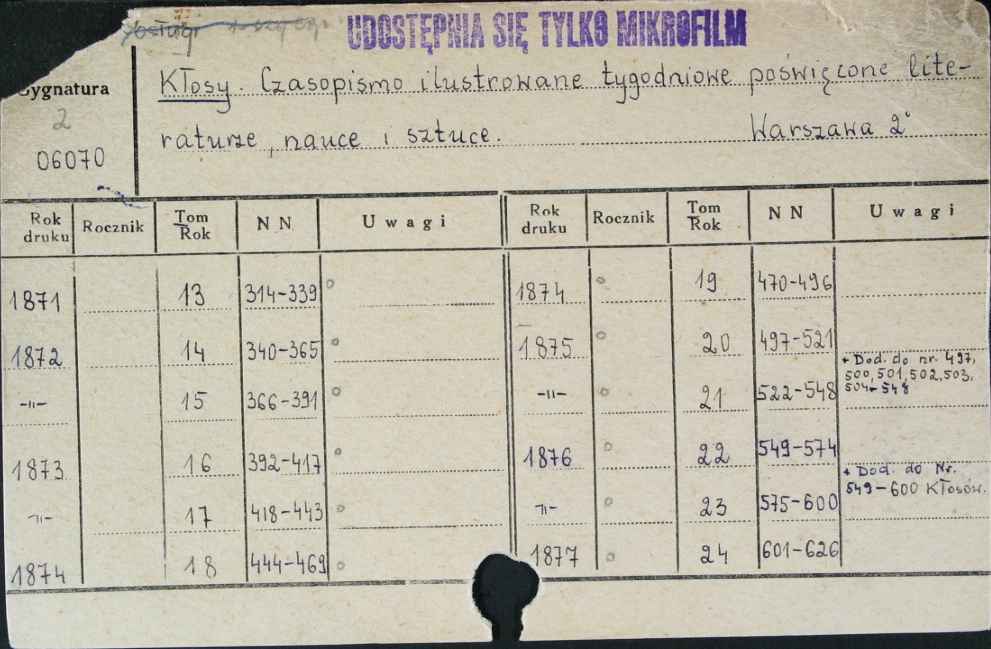 UDOSTĘPNIA SIĘ TYLKO MIKROFILM
Sygnatura
2
06070
Kłosy. Czasopismo ilustrowane tygodniowe poświęcone lite-
raturze, nauce i sztuce. Warszawa 2°
Rok druku Rocznik Tom/Rok NN Uwagi Rok druku Rocznik Tom/Rok NN Uwagi
1871 13 314-339 ° 1874 ° 19 470-496
1872 14 340-365 ° 1875 ° 20 497-521
-"- 15 366-391 ° -"- ° 21 522-548 + Dod. do nr. 497,
500, 501, 502, 503,
504-548
1873 16 392-417 ° 1876 ° 22 549-574
-"- 17 418-443 ° -"- ° 23 575-600 + Dod. do Nr.
549-600 Kłosów.
1874 18 444-469 ° 1877 ° 24 601-626